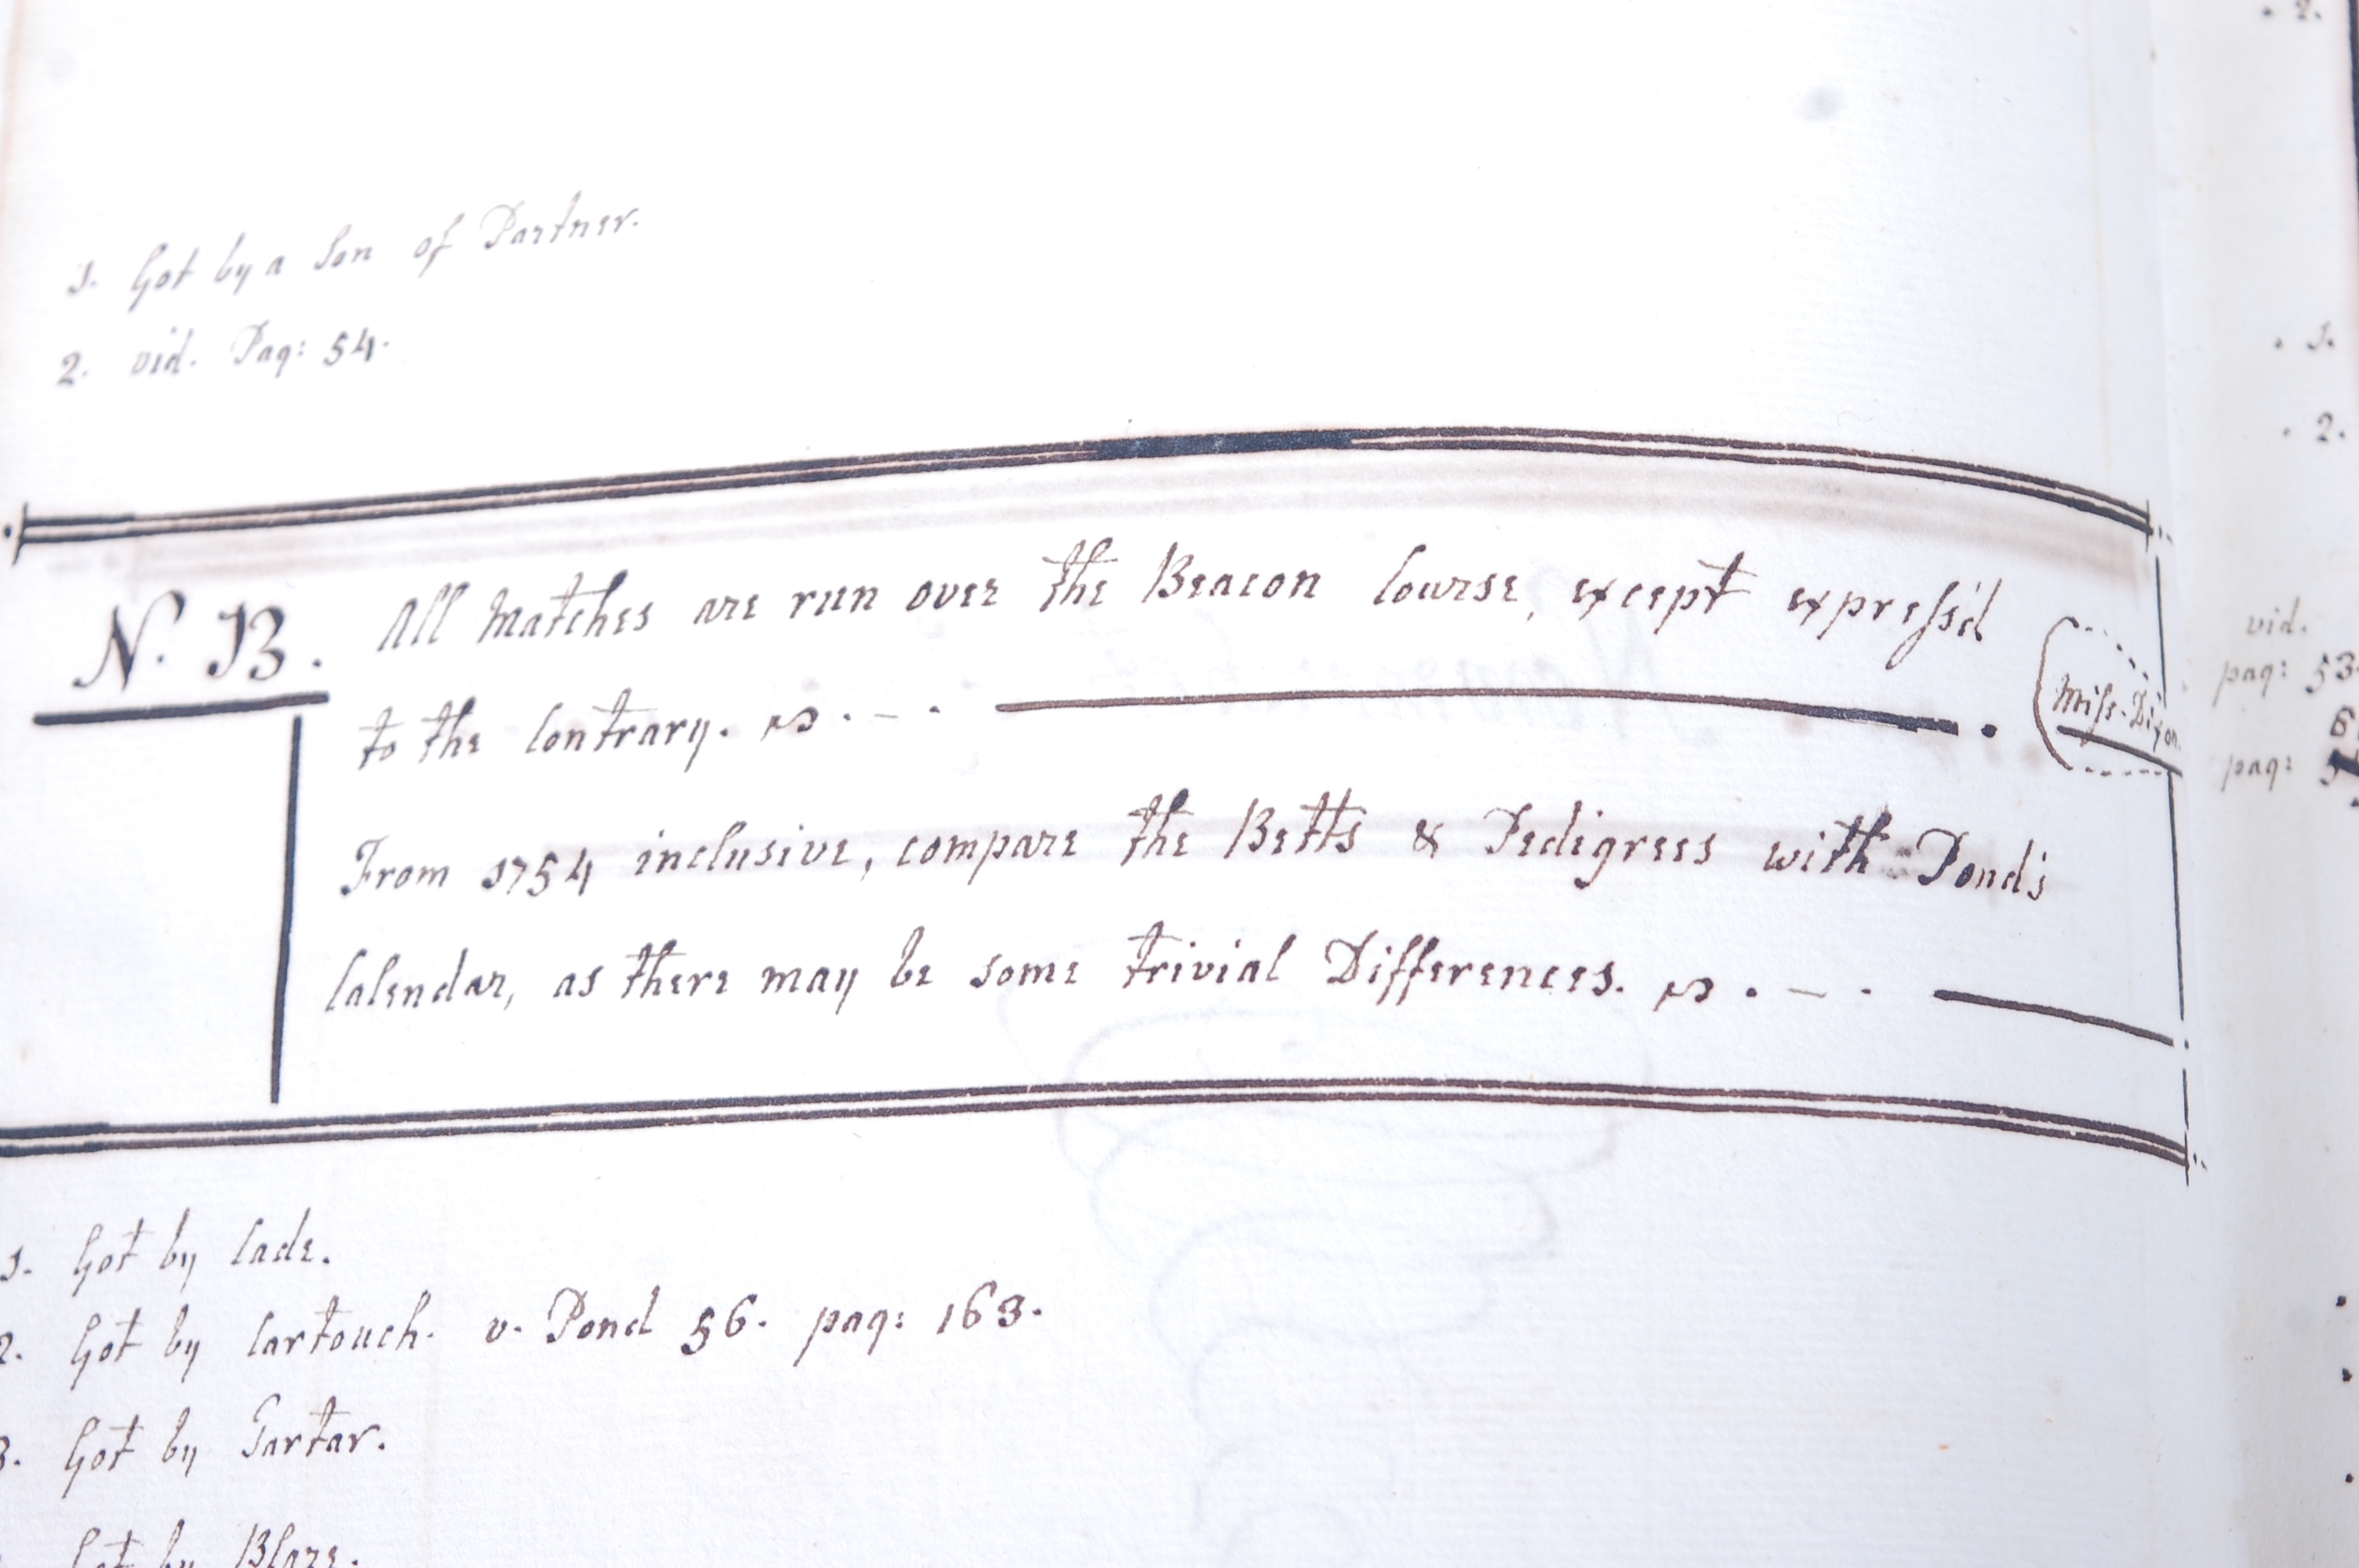 1. Got by a Son of Partner.
2. vid. Pag: 54.
N. B. All Matches are run over the Beacon Course, except express'd
to the Contrary.
Miss-Dixon.
From 1754 inclusive, compare the Betts & Pedigrees with Pond's
Calendar, as there may be some trivial Differences.
1. Got by Cade.
2. Got by Cartouch. v. Pond 56. pag: 163.
3. Got by Tartar.
Got by Blaze.
2.
1.
2.
vid.
pag: 53.
pag: